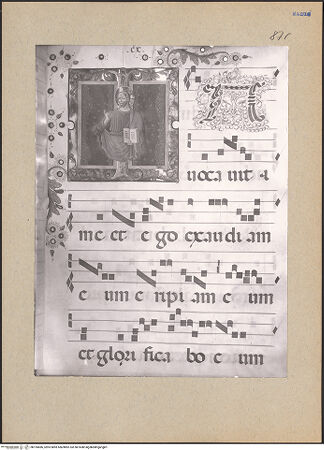 871
cx.
I N
uoca uit a
me et e go exaudi am
e um e ripi am e um
et glori fica bo e um